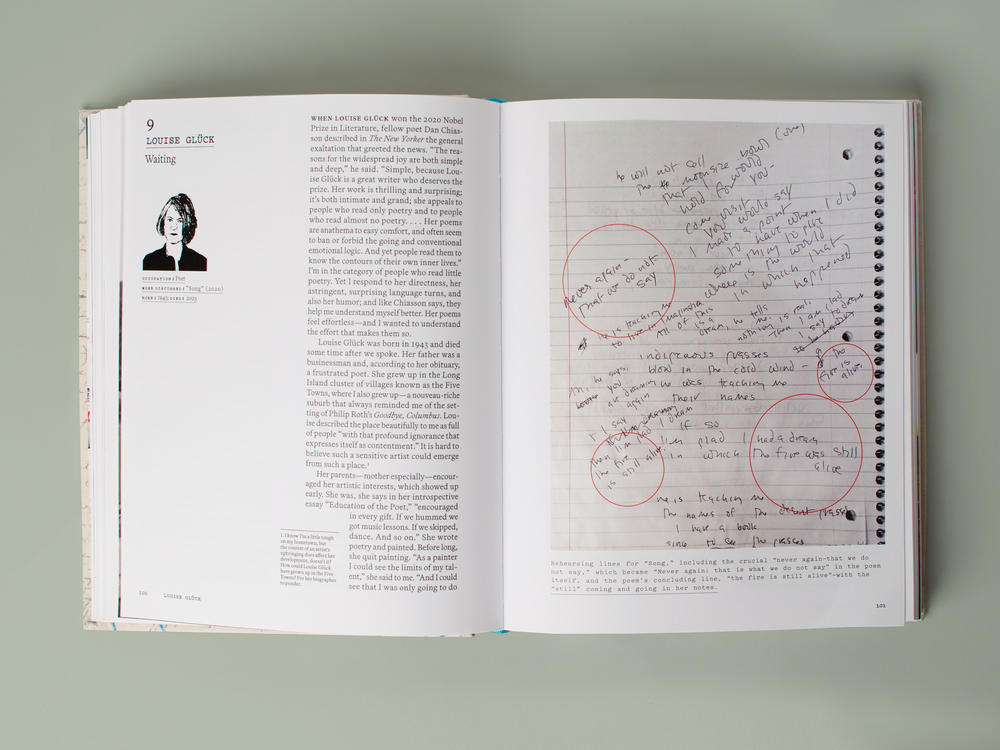 9
LOUISE GLÜCK
Waiting
OCCUPATION: Poet
WORK DISCUSSED: "Song" (2020)
BORN: 1943; DIED: 2023
WHEN LOUISE GLÜCK won the 2020 Nobel
Prize in Literature, fellow poet Dan Chias-
son described in The New Yorker the general
exaltation that greeted the news. "The rea-
sons for the widespread joy are both simple
and deep," he said. "Simple, because Lou-
ise Glück is a great writer who deserves the
prize. Her work is thrilling and surprising;
it's both intimate and grand; she appeals to
people who read only poetry and to people
who read almost no poetry. . . . Her poems
are anathema to easy comfort, and often seem
to ban or forbid the going and conventional
emotional logic. And yet people read them to
know the contours of their own inner lives."
I'm in the category of people who read little
poetry. Yet I respond to her directness, her
astringent, surprising language turns, and
also her humor; and like Chiasson says, they
help me understand myself better. Her poems
feel effortless—and I wanted to understand
the effort that makes them so.
Louise Glück was born in 1943 and died
some time after we spoke. Her father was a
businessman and, according to her obituary,
a frustrated poet. She grew up in the Long
Island cluster of villages known as the Five
Towns, where I also grew up—a nouveau-riche
suburb that always reminded me of the set-
ting of Philip Roth's Goodbye, Columbus. Lou-
ise described the place beautifully to me as full
of people "with that profound ignorance that
expresses itself as contentment." It is hard to
believe such a sensitive artist could emerge
from such a place.¹
Her parents—mother especially—encour-
aged her artistic interests, which showed up
early. She was, she says in her introspective
essay "Education of the Poet," "encouraged
in every gift. If we hummed we
got music lessons. If we skipped,
dance. And so on." She wrote
poetry and painted. Before long,
she quit painting. "As a painter
I could see the limits of my tal-
ent," she said to me. "And I could
see that I was only going to do
1. I know I'm a little tough
on my hometown, but
the context of an artist's
upbringing does affect her
development, doesn't it?
How could Louise Glück
have grown up in the Five
Towns? For her biographer
to ponder.
100 LOUISE GLÜCK
he will not sell
the moonsize bowl (one)
that I would
hold for you -
come visit
you would say
I made a point
to have when I did
something to place
where is the world
in which that
happened
never again -
that we do not
say
he is teaching me
to live in imagination
All of this
is a
dream, he tells
nothing is real
Then I am glad
I say to dream
indigenous grasses
blow in the cold wind -
he was teaching me
their names
the
fire is
alive
he says,
you
are dreaming
again
& I say
then I'm glad I dream
the fire
is still alive
if so
I'm glad I had a dream
in which the fire was still
alive
he is teaching me
the names of the desert grasses
I have a book
since to see the grasses
Rehearsing lines for "Song," including the crucial "never again—that we do
not say," which became "Never again: that is what we do not say" in the poem
itself, and the poem's concluding line, "the fire is still alive"—with the
"still" coming and going in her notes.
101